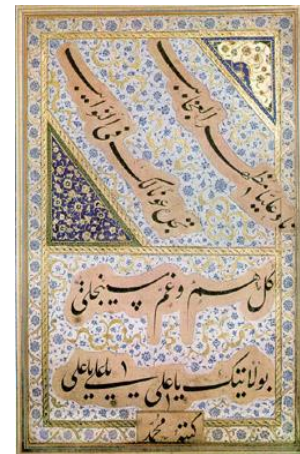 ناد علیا مظهر العجائب
تجده عونا لک فی النوائب
کل هم و غم سینجلی
بولایتک یاعلی یاعلی یاعلی
کتبه محمد